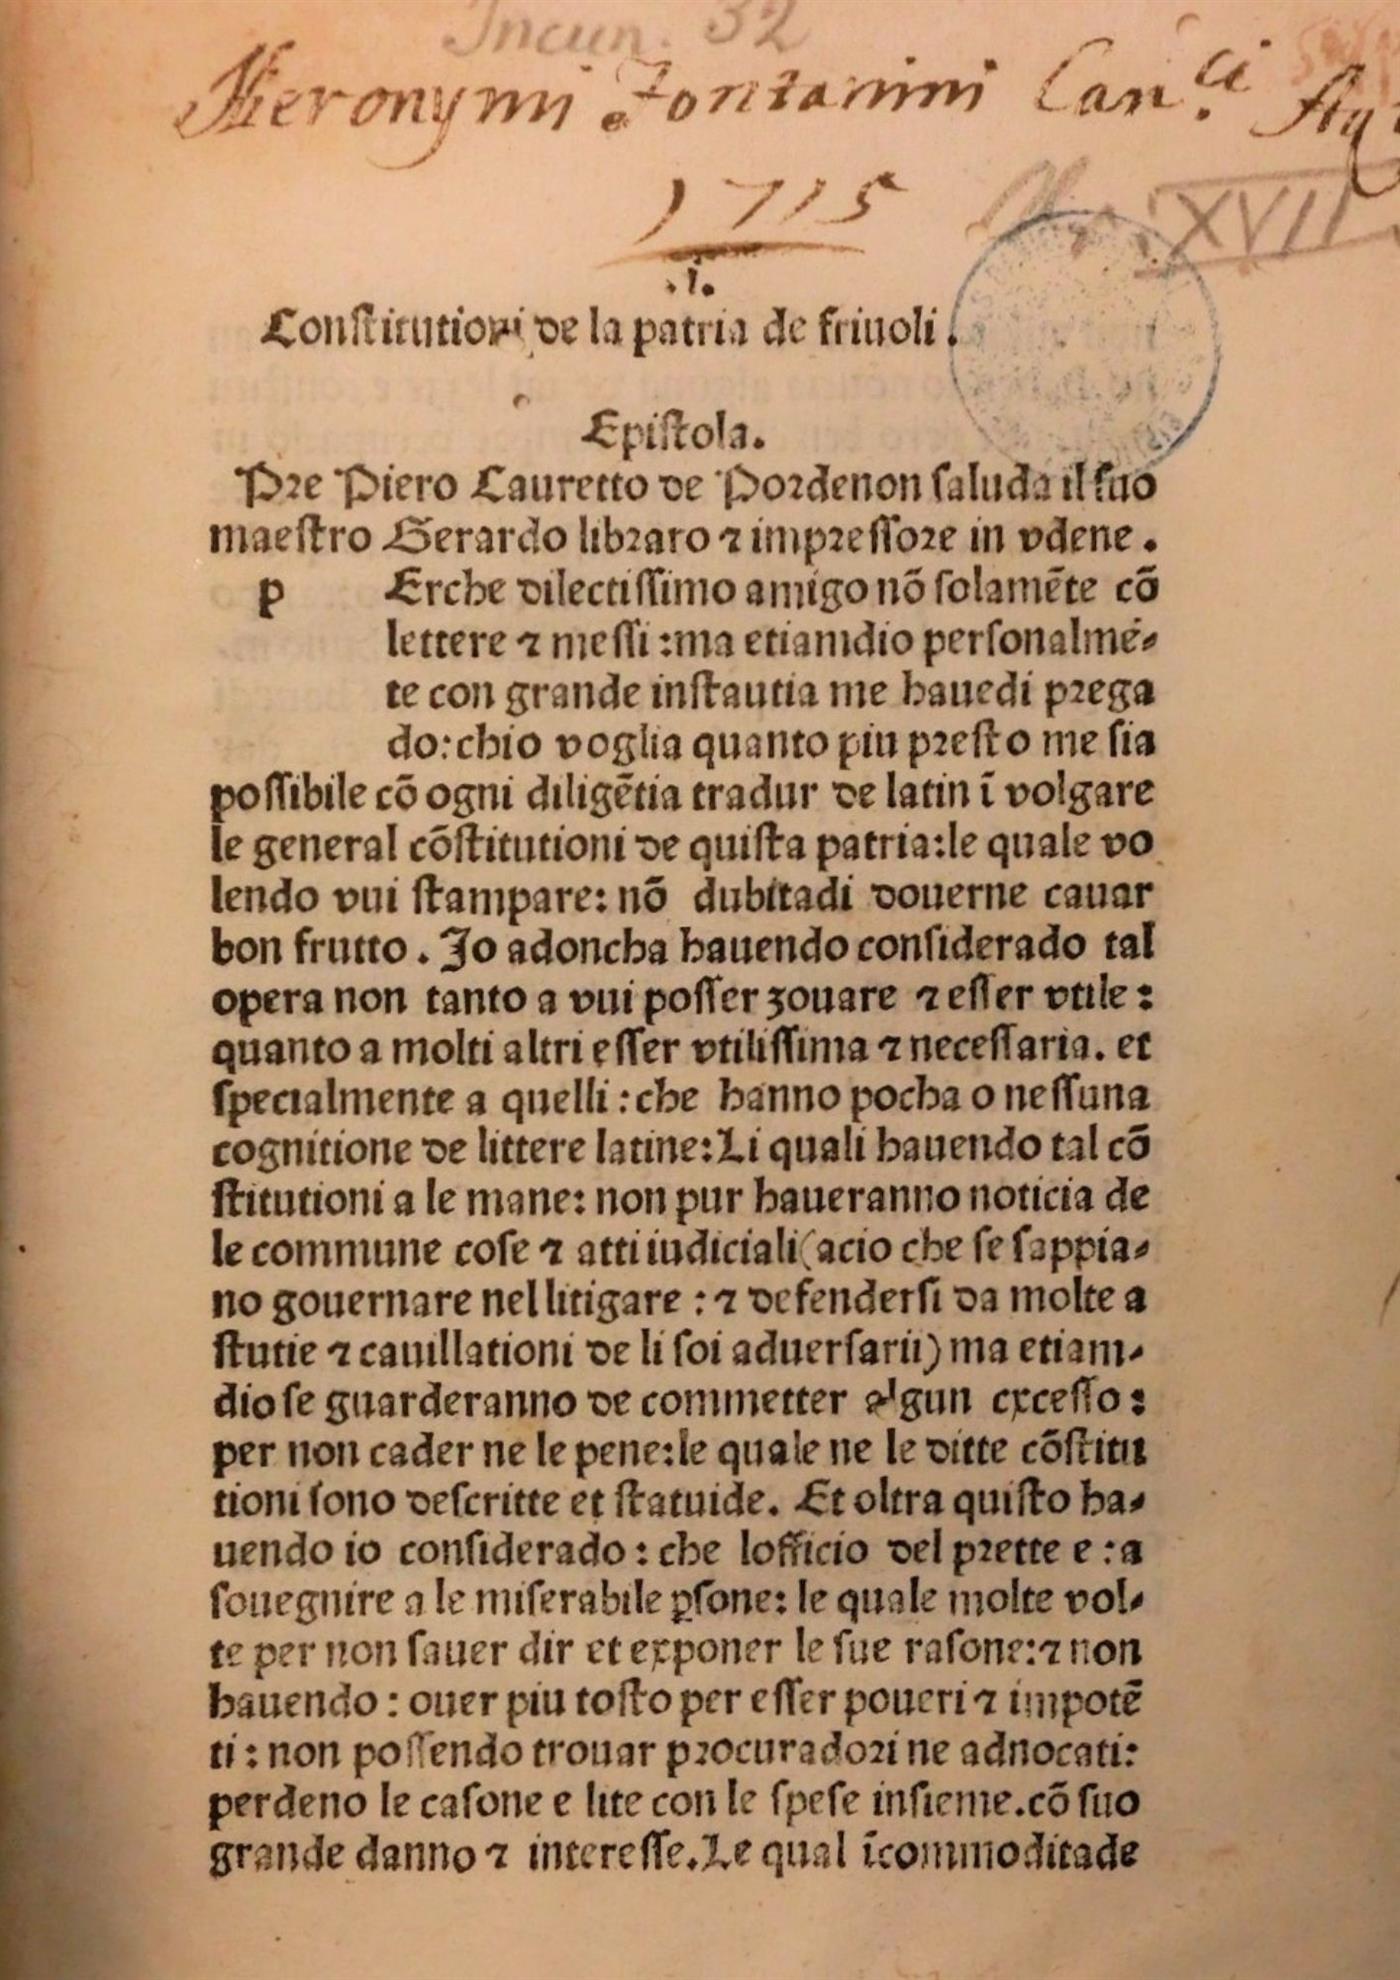 Incun. 32
Hieronymi Fontanini Can.ci
1715
XVII
.I.
Constitutioni de la patria de friuoli.
Epistola.
Pre Piero Cauretto de Pordenon saluda il suo
maestro Gerardo libraro ⁊ impressore in vdene.
p Erche dilectissimo amigo nō solamēte cō
lettere ⁊ messi: ma etiamdio personalmē-
te con grande instautia me hauedi prega
do: chio voglia quanto piu presto me sia
possibile cō ogni diligētia tradur de latin ī volgare
le general cōstitutioni de quista patria: le quale vo
lendo vui stampare: nō dubitadi douerne cauar
bon frutto. Jo adoncha hauendo considerado tal
opera non tanto a vui posser zouare ⁊ esser vtile:
quanto a molti altri esser vtilissima ⁊ necessaria. et
specialmente a quelli: che hanno pocha o nessuna
cognitione de littere latine: Li quali hauendo tal cō
stitutioni a le mane: non pur haueranno noticia de
le commune cose ⁊ atti iudiciali (acio che se sappia-
no gouernare nel litigare: ⁊ defendersi da molte a
stutie ⁊ cauillationi de li soi aduersarii) ma etiam-
dio se guarderanno de commetter algun excesso:
per non cader ne le pene: le quale ne le ditte cōstitu
tioni sono descritte et statuide. Et oltra quisto ha-
uendo io considerado: che lofficio del prette e: a
souegnire a le miserabile ꝑsone: le quale molte vol-
te per non sauer dir et exponer le sue rasone: ⁊ non
hauendo: ouer piu tosto per esser poueri ⁊ impotē
ti: non possendo trouar procuradori ne adnocati:
perdeno le casone e lite con le spese insieme. cō suo
grande danno ⁊ interesse. Le qual īcommoditade